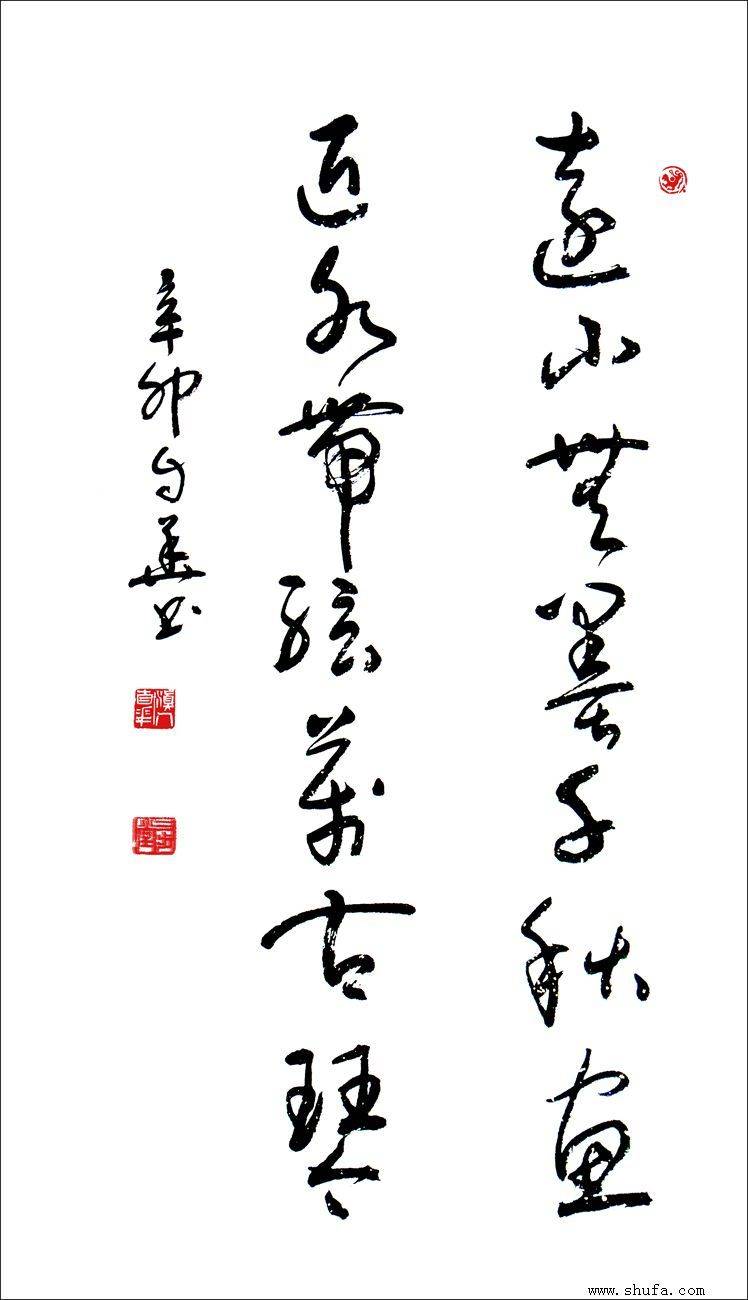 遠山無墨千秋畫
近水帶弦萬古琴
辛卯華书
www.shufa.com